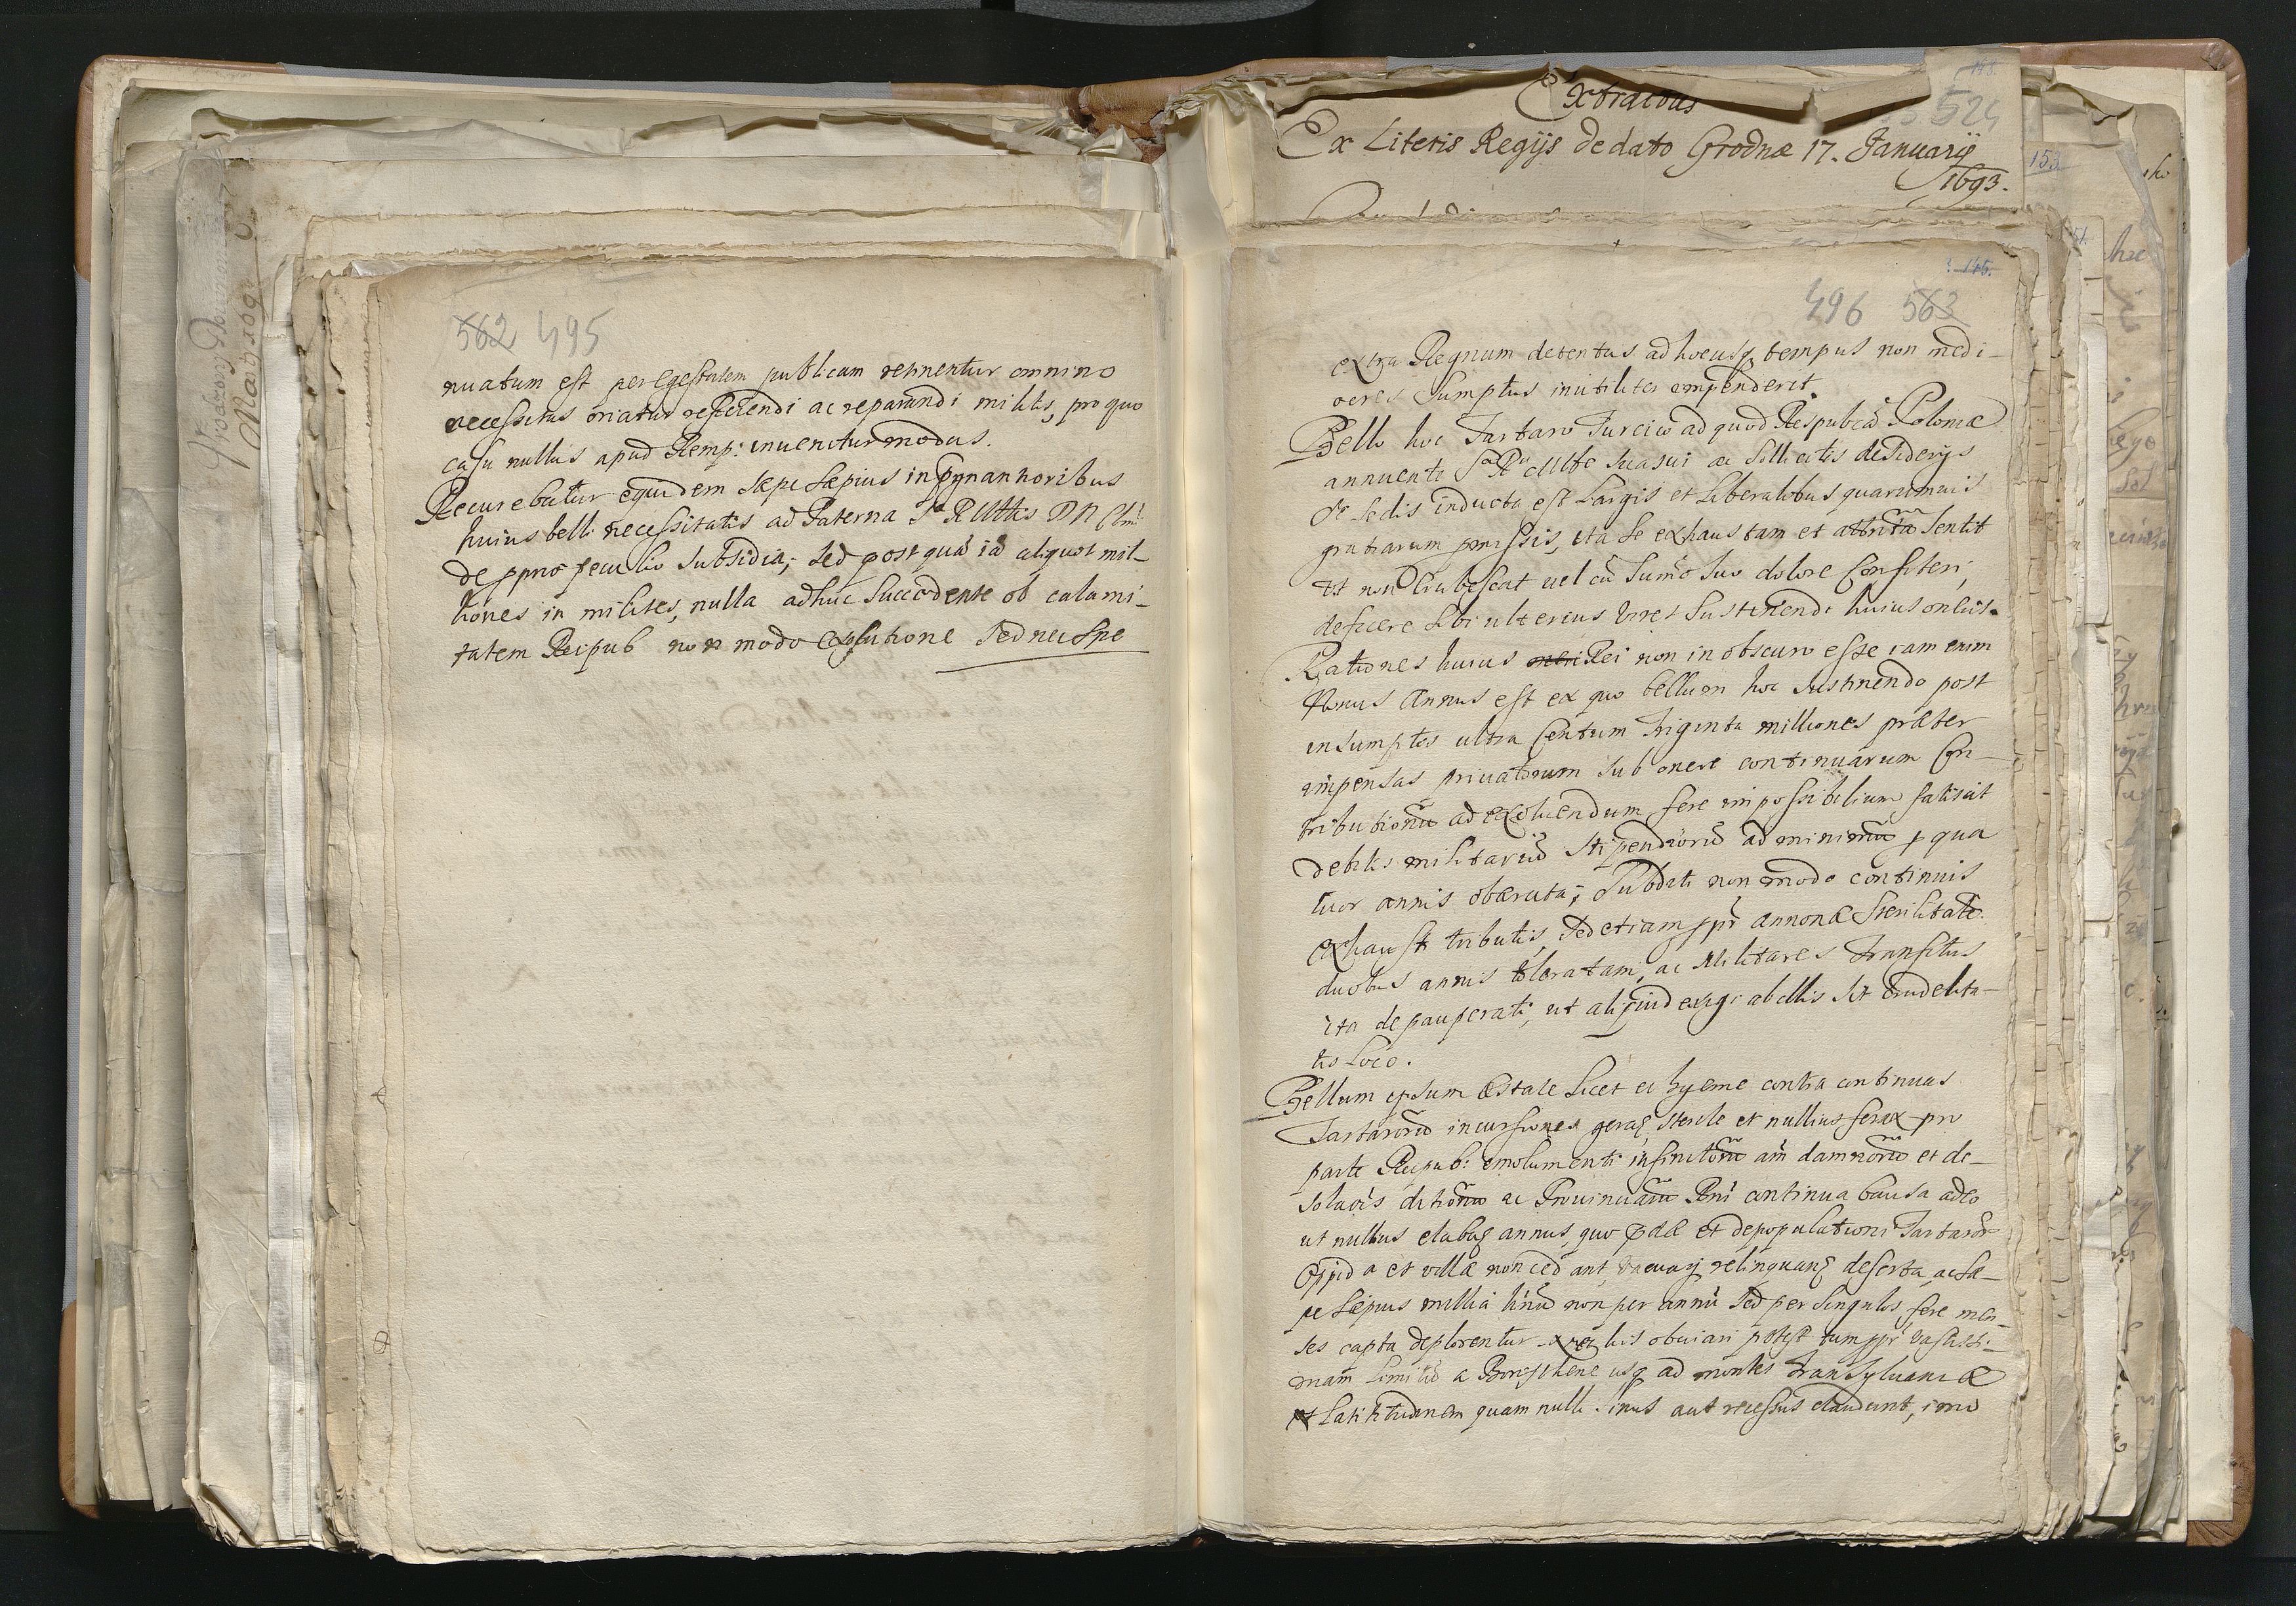 562 495
nuatum est per egestatem publicam retinentur omnino
necessitas oriatur reficiendi ac reparandi militis, pro quo
casu nullus apud Remp: inuenitur modus.
Recurebatur equidem sæpe sæpius in
huius belli necessitatis ad Paterna
de pprio peculio subsidia; sed post quã iã aliquot mil-
liones in milites, nulla adhuc succedente ob calami-
tatem Reipub non modo exsolutione sed nec spe
Extractus
Ex Literis Regijs de dato Grodnæ 17. Januarij
1693.
524
153
145.
496 563
extra Regnum detentus ad hocusq tempus non medi-
ocres sumptus inutiliter impenderit.
Bello hoc Tartaro Turcico ad quod Respublcã Polonæ
annuente suasui ac sollicitis desiderijs
Se sedis inducta est Largis et Liberalibus quarumuis
gratiarum pmissis, ita se exhaustam et attritã sentit
Ut non Erubescat uel cũ sum̃o suo dolore Confiteri,
deficere sibi ulterius vires sustinendi huius oneris.
Rationes huius Rei non in obscuro esse iam enim
Nonus Annus est ex quo bellum hoc sustinendo post
insumptos ultra Centum triginta milliones præter
impensas priuatorum sub onere continuarum Con-
tributionũ ad exoluendum fere impossibilium fatiscit
debitis militariũ stipendiorũ ad minimũ p qua
tuor annis obæruta; Subditi non modo continuis
exhausti tributis, sed etiam ppr annonæ sterilitatẽ
duobus annis toleratam, ac Militares Transitus
ita depauperati, ut aliquid exigi ab illis sit Crudelita-
tis Loco.
Bellum ipsum Æstate licet et hyeme contra continuas
Tartarorũ incursiones geraꝭ, sterile et nullius ferax pro
parte Reipub: emolumenti infinitorũ añ damnorũ et de-
solaõis ditionũ ac Prouinciarũ Rni continua Causa adeo
ut nullus elabaꝭ annus, quo pdæ et depopulationi Tartarorũ
Oppida et villæ non cedant, relinquanꝭ deserta, ac sæ-
pe sæpius millia non per annũ sed per singulos fere men-
ses capta deplorentur nec his obuiari potest tum ppr vastissi-
mam Limitũ a Borysthene usq ad montes Transyluaniæ
Latitudinem quam nulli sinus aut recessus claudunt, imo